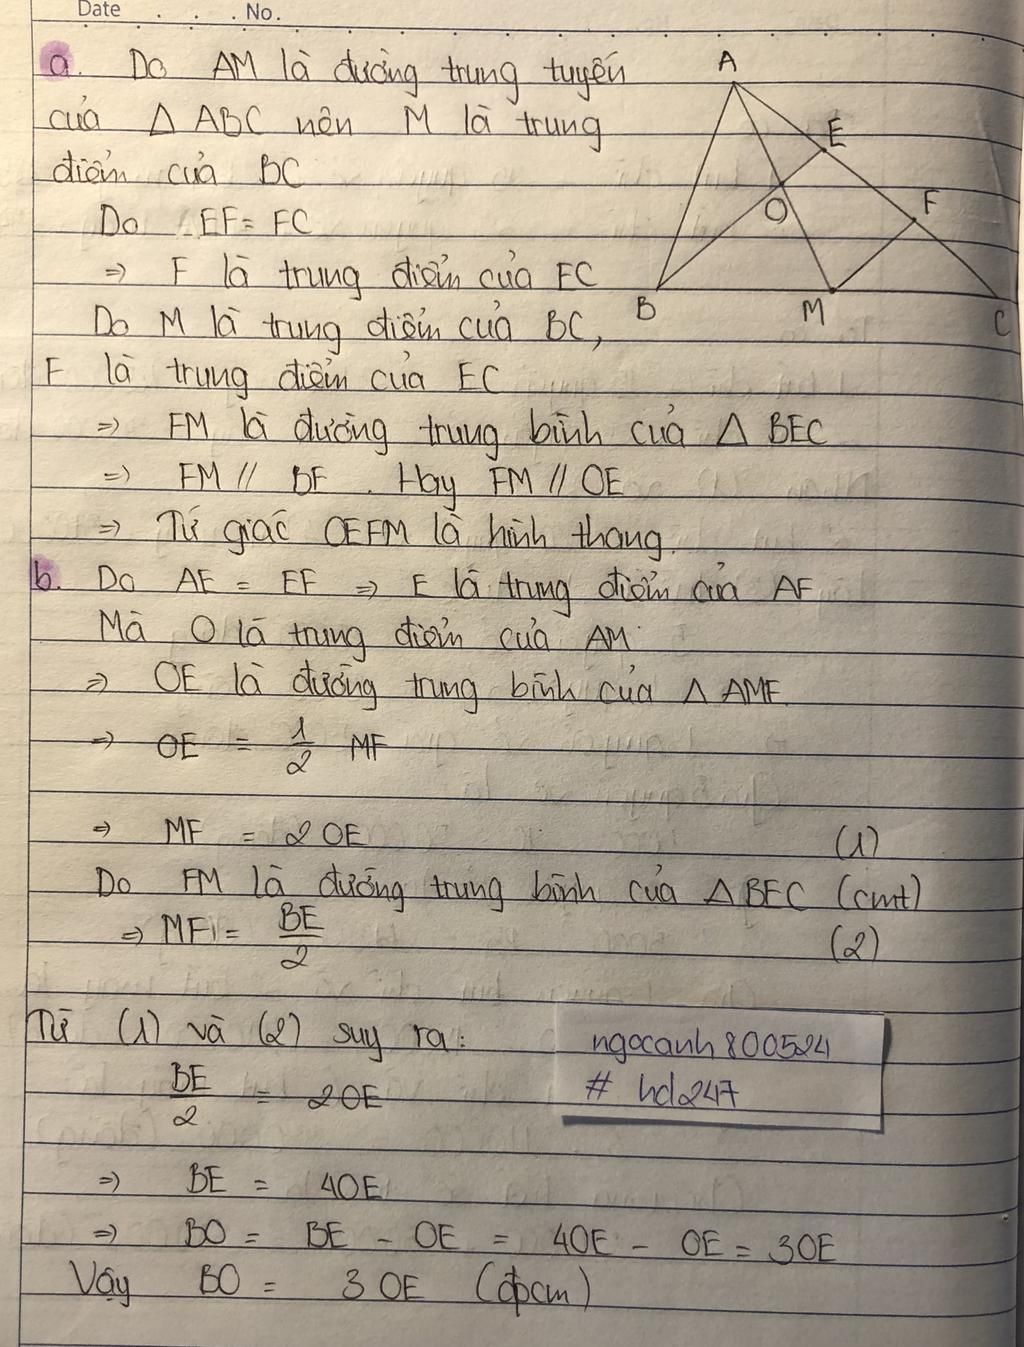 Date . . . . No.
a. Do AM là đường trung tuyến
của Δ ABC nên M là trung
điểm của BC
Do EF = FC
=> F là trung điểm của EC
Do M là trung điểm của BC,
F là trung điểm của EC
=> FM là đường trung bình của Δ BEC
=> FM // BE . Hay FM // OE
=> Tứ giác OEFM là hình thang.
b. Do AE = EF => E là trung điểm của AF
Mà O là trung điểm của AM
=> OE là đường trung bình của Δ AMF
=> OE = 1/2 MF
=> MF = 2 OE (1)
Do FM là đường trung bình của Δ BEC (cmt)
=> MF = BE/2 (2)
Từ (1) và (2) suy ra:
BE/2 = 2OE
=> BE = 4OE
=> BO = BE - OE = 4OE - OE = 3OE
Vậy BO = 3 OE (đpcm)
A
E
F
O
B
M
C
ngocanh800524
# hd247